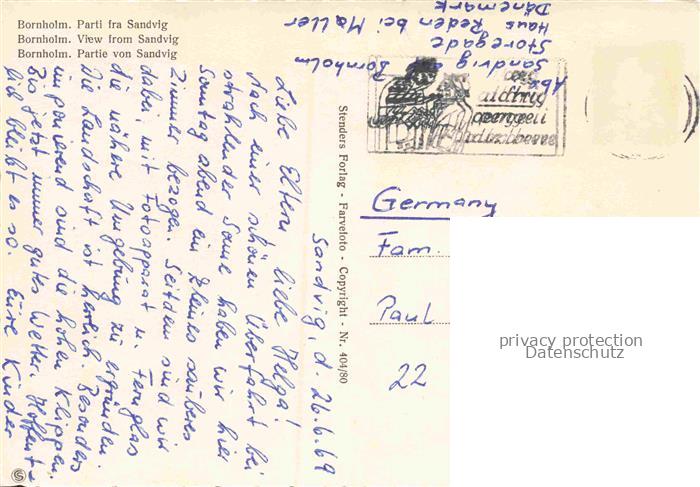 Bornholm. Parti fra Sandvig
Bornholm. View from Sandvig
Bornholm. Partie von Sandvig
Sandvig, d. 26.6.69
Liebe Eltern, liebe Helga!
Nach einer schönen Überfahrt bei
strahlender Sonne haben wir hier
Sonntag abend ein kleines sauberes
Zimmer bezogen. Seitdem sind wir
dabei, mit Fotoapparat u. Fernglas
die nähere Umgebung zu ergründen.
Die Landschaft ist herrlich. Besonders
imponierend sind die hohen Klippen.
Bis jetzt immer gutes Wetter. Hoffent-
lich bleibt es so. Eure Kinder
Stenders Forlag - Farvefoto - Copyright - Nr. 404/80
Abs.
Sandvig Bornholm
Storegade
Haus Reden bei Møller
Dänemark
aldrig
penge i
Germany
Fam.
Paul
22
privacy protection
Datenschutz